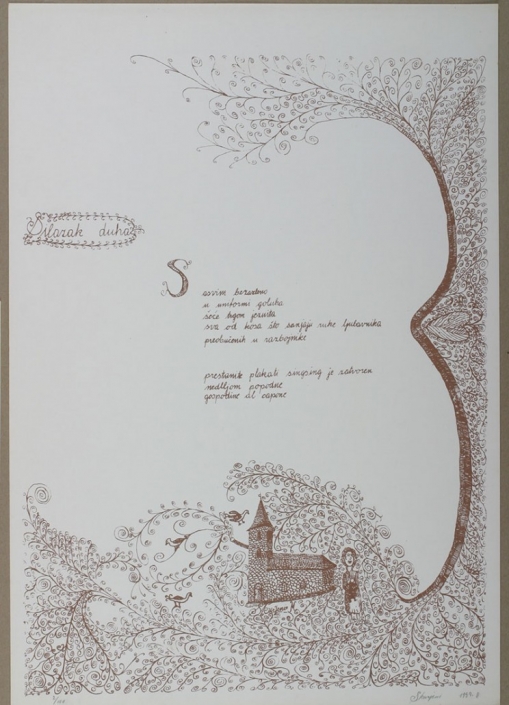 Silazak duha
Sasvim bezazleno
u uniformi goluba
šeće trgom jezuita
sva od kosa što sanjaju ruke ljutavnika
preobučenih u razbojnike
prestanite plakati simping je zatvoren
nedjljom popodne
gospodine al capone